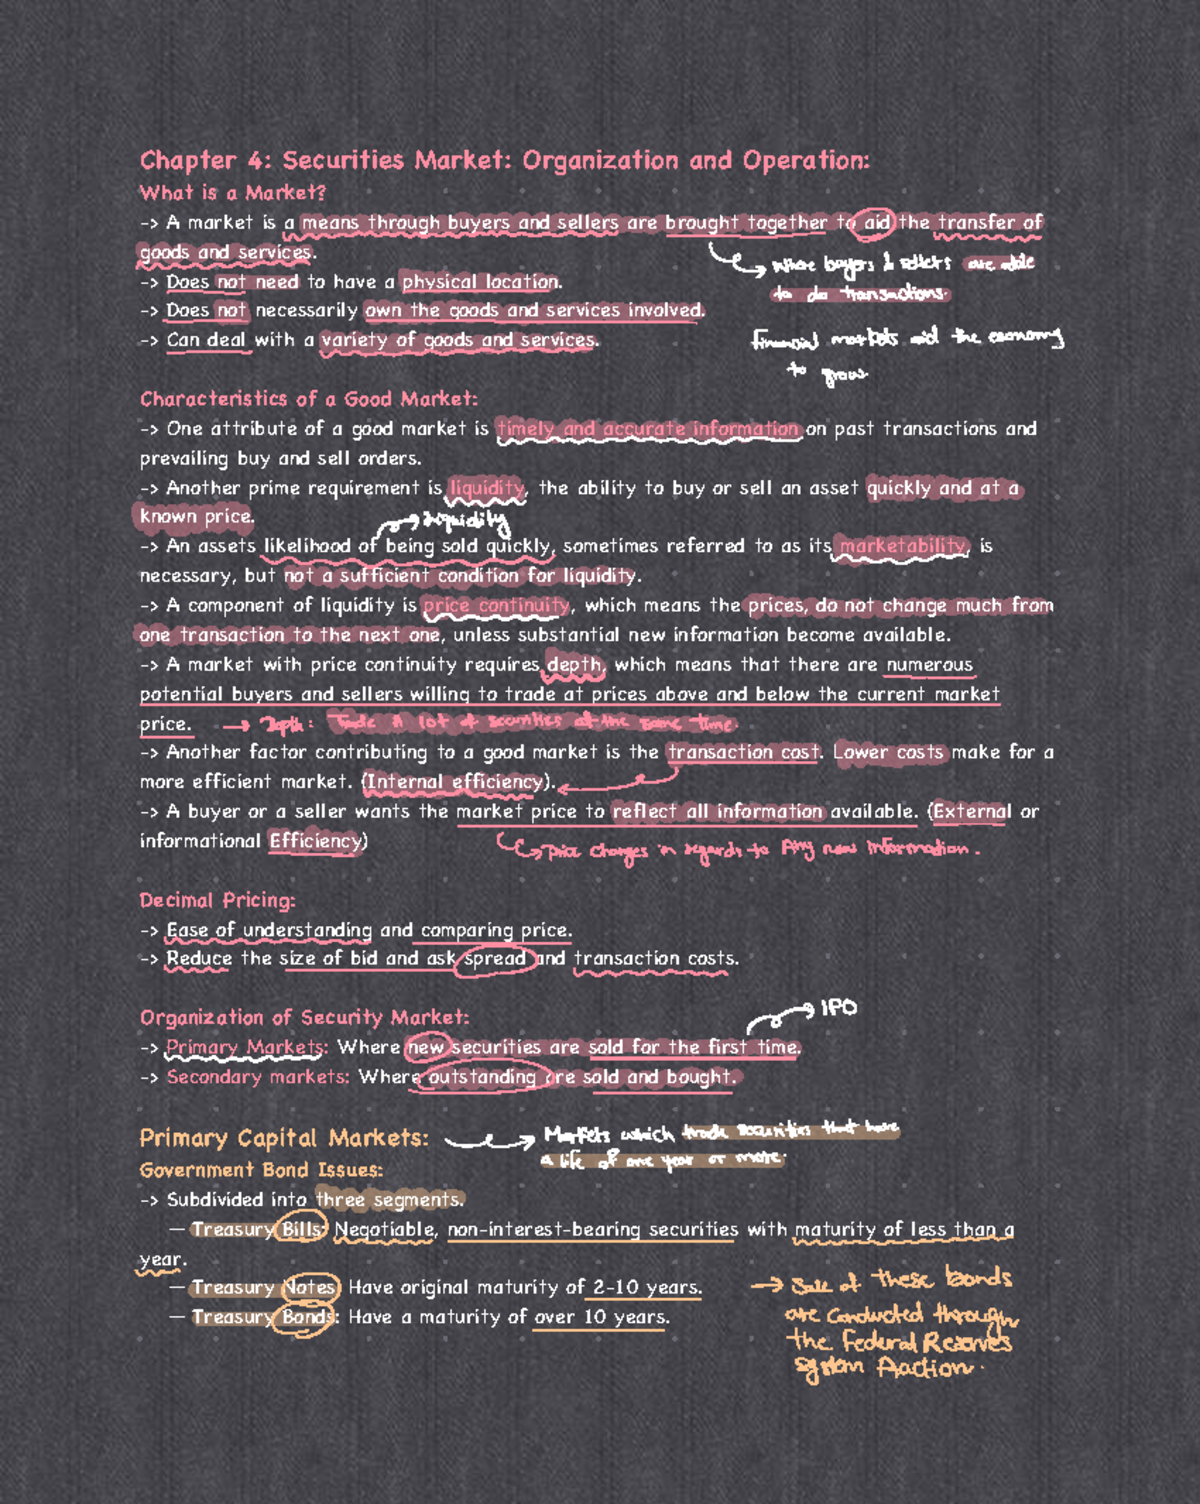 Chapter 4: Securities Market: Organization and Operation:
What is a Market?
-> A market is a means through buyers and sellers are brought together to aid the transfer of
goods and services.
-> where buyers & sellers are able
to do transactions.
-> Does not need to have a physical location.
-> Does not necessarily own the goods and services involved.
-> Can deal with a variety of goods and services.
Financial markets aid the economy
to grow
Characteristics of a Good Market:
-> One attribute of a good market is timely and accurate information on past transactions and
prevailing buy and sell orders.
-> Another prime requirement is liquidity, the ability to buy or sell an asset quickly and at a
known price.
-> liquidity
-> An assets likelihood of being sold quickly, sometimes referred to as its marketability, is
necessary, but not a sufficient condition for liquidity.
-> A component of liquidity is price continuity, which means the prices, do not change much from
one transaction to the next one, unless substantial new information become available.
-> A market with price continuity requires depth, which means that there are numerous
potential buyers and sellers willing to trade at prices above and below the current market
price. -> Depth: Trade A lot of securities at the same time.
-> Another factor contributing to a good market is the transaction cost. Lower costs make for a
more efficient market. (Internal efficiency).
-> A buyer or a seller wants the market price to reflect all information available. (External or
informational Efficiency)
-> price changes in regards to Any new information.
Decimal Pricing:
-> Ease of understanding and comparing price.
-> Reduce the size of bid and ask spread and transaction costs.
Organization of Security Market:
-> IPO
-> Primary Markets: Where new securities are sold for the first time.
-> Secondary markets: Where outstanding are sold and bought.
Primary Capital Markets: -> Markets which trade securities that have
a life of one year or more.
Government Bond Issues:
-> Subdivided into three segments.
— Treasury Bills: Negotiable, non-interest-bearing securities with maturity of less than a
year.
— Treasury Notes: Have original maturity of 2-10 years.
— Treasury Bonds: Have a maturity of over 10 years.
-> Sale of these bonds
are conducted through
the Federal Reserves
system Aaction.